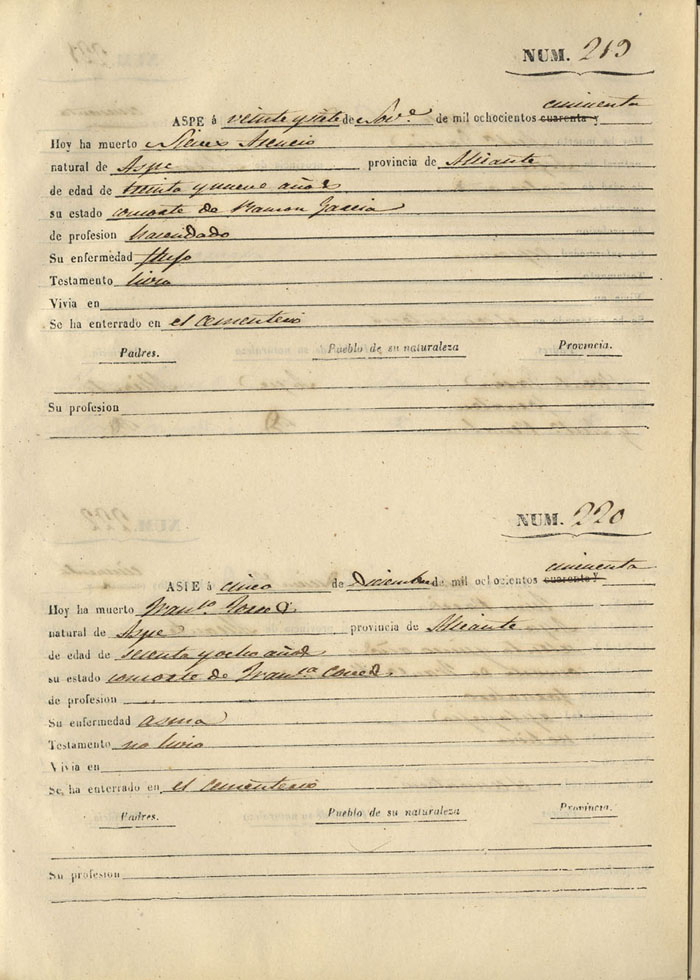 NUM. 219
cincuenta
ASPE á veinte y siete de Nov.e de mil ochocientos cuarenta y
Hoy ha muerto Asencio
natural de Aspe provincia de Alicante
de edad de treinta y nueve años
su estado consorte de Ramon Garcia
de profesion hacendado
Su enfermedad
Testamento
Vivia en
Se ha enterrado en el cementerio
Padres. Pueblo de su naturaleza Provincia.
Su profesion
NUM. 220
cincuenta
ASPE á cinco de Diciembre de mil ochocientos cuarenta y
Hoy ha muerto Fran.co
natural de Aspe provincia de Alicante
de edad de setenta y ocho años
su estado consorte de Fran.ca
de profesion
Su enfermedad asma
Testamento no
Vivia en
Se ha enterrado en el cementerio
Padres. Pueblo de su naturaleza Provincia.
Su profesion